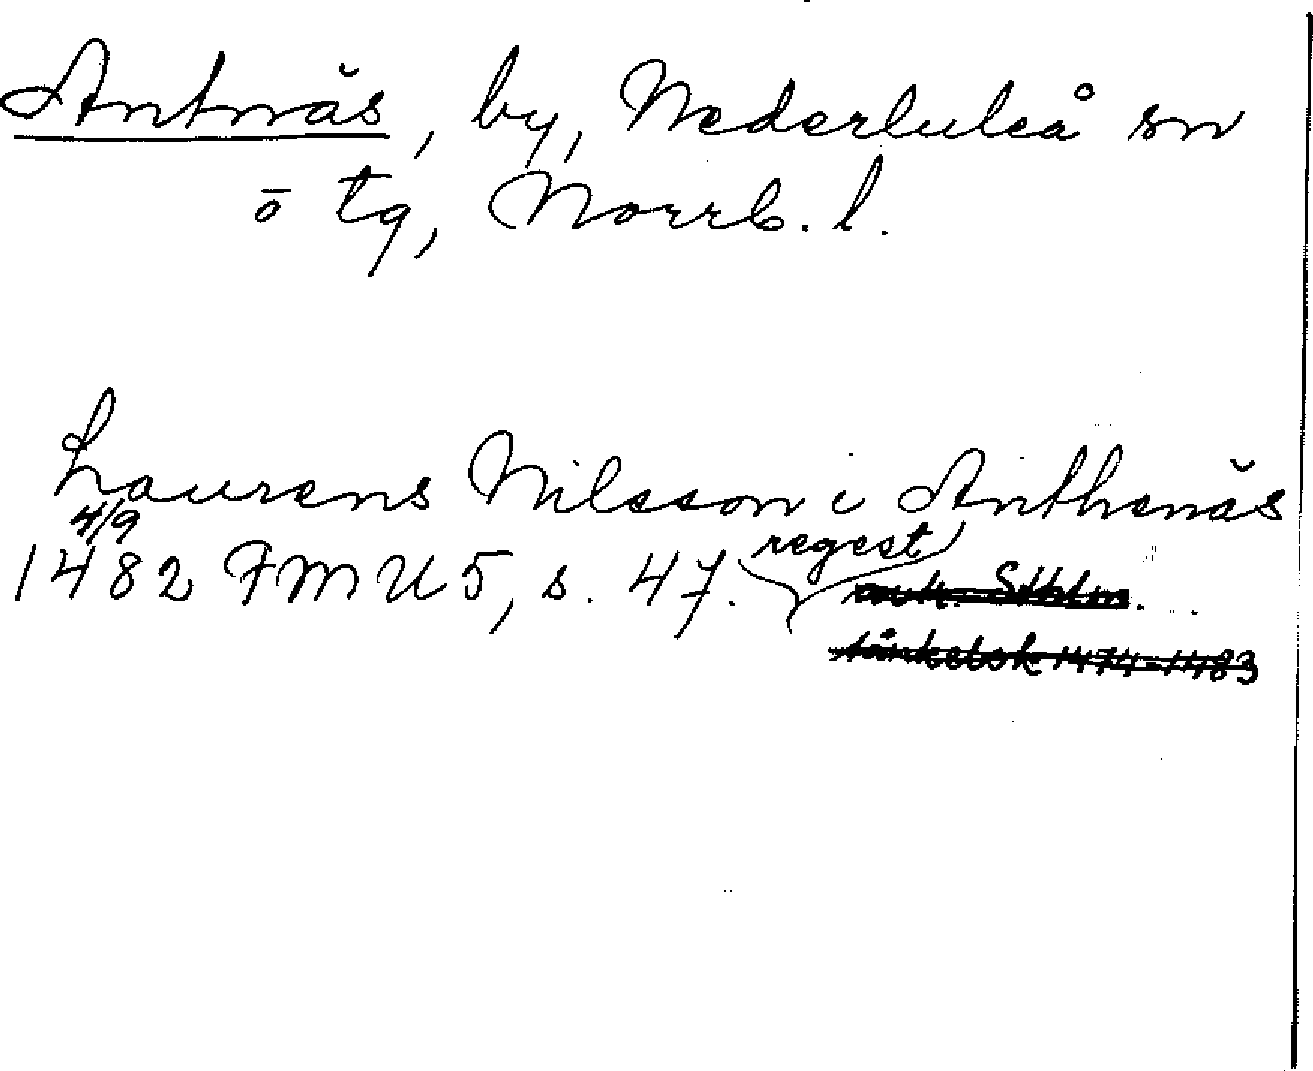 Antnäs, by, Nederluleå sn
ö tg, Norrb. l.
Laurens Nilsson i Anthenäs
4/9
1482 FMU 5, s. 47. regest
Sthlm.
tänkebok 1474-1483